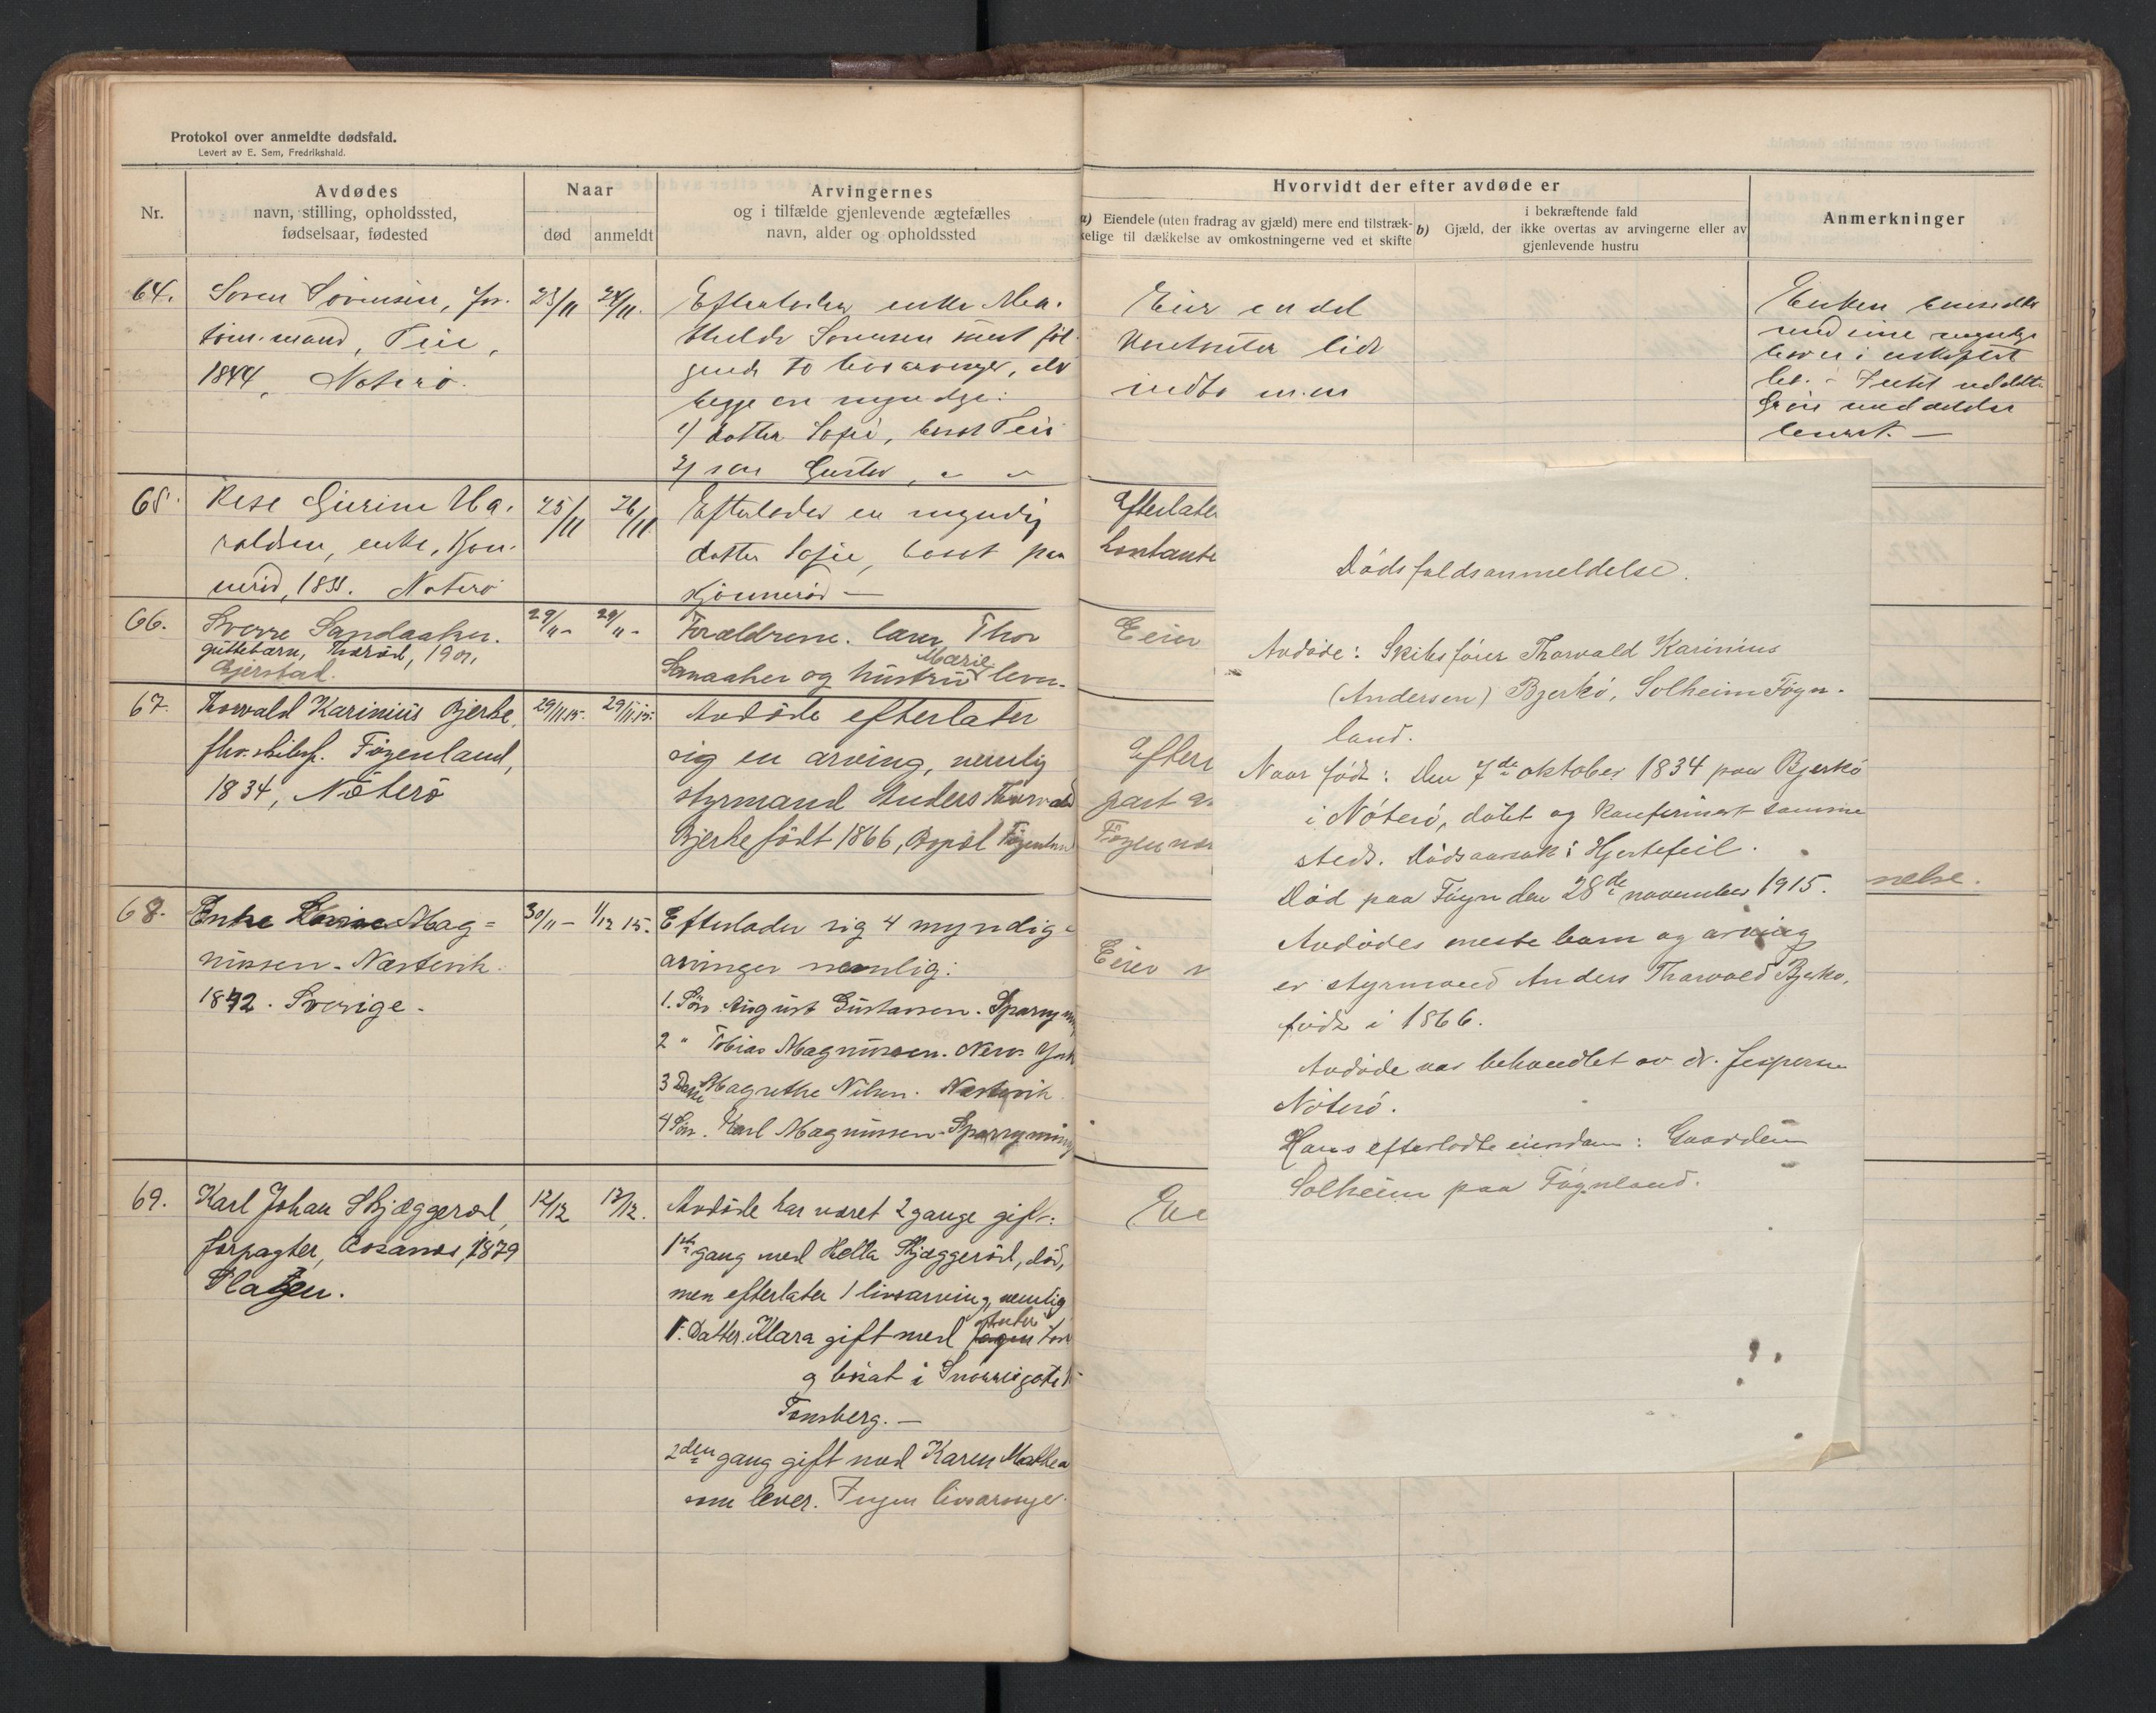 Protokol over anmeldte dødsfald.
Levert av E. Sem, Fredrikshald.
Nr.
Avdødes
navn, stilling, opholdssted,
fødselsaar, fødested
Naar
død
anmeldt
Arvingernes
og i tilfælde gjenlevende ægtefælles
navn, alder og opholdssted
64.
Søren Sørensen, for.
tøm.mand, Teie,
1844, Nøterø.
23/11
24/11.
Efterlader enke Mat.
hilde Sørensen samt føl
gende to livsarvinger, der
begge er myndige:
1) datter Sofie, bosat Teie
2) søn Gustav, " "
65.
Gurine Ha.
raldsen, enke, Kjøn.
nerød, 1833. Nøterø
25/11
26/11
Efterlader en myndig
datter Sofie, bosat paa
Kjønnerød —
66.
Sverre Sandaaker.
guttebarn, Thorød, 1901,
Gjerstad.
29/11-
29/11-
Forældrene. Lærer Thor
Sanaaker og hustru Marie lever.
67.
Thorvald Karinius Bjerke,
fhv. skibsf. Føgenland,
1834, Nøterø
29/11.15.
29/11.15.
Avdøde efterlater
sig en arving, nemlig
styrmand Anders Thorvald
Bjerke født 1866, Bopæl Føgenland
68.
Enke Lovise Mag=
nussen - Næstevik.
1842. Sverige.
30/11 -
1/12 15.
Efterlader sig 4 myndige
arvinger nemlig:
1. Søn August Gustavsen.
2 " Tobias Magnussen. New York
3 Datter Magrethe Nilsen. Næstevik.
4 Søn. Karl Magnussen.
69.
Karl Johan Skjæggerød,
forpagter, Rosanes, 1879
Slagen.
12/12
13/12.
Avdøde har været 2 gange gift:
1ste gang med Hella Skjæggerød, død,
men efterlater 1 livsarving, nemlig
1. Datter. Klara gift med
og bosat i
Tønsberg. —
2den gang gift med Karen Mathea
som lever. Ingen livsarvinger.
Hvorvidt der efter avdøde er
a) Eiendele (uten fradrag av gjæld) mere end tilstræk-
kelige til dækkelse av omkostningerne ved et skifte
b) Gjæld, der ikke overtas av arvingerne eller av
i bekræftende fald
gjenlevende hustru
Anmerkninger
Eier en del
lidt
indbo m.m
Enken hensidder
med sine myndige
barn i uskiftet
bo. -
Efterlate
kontante
Eier
Efterl
part
Føgen
Eier
nelse.
Dødsfaldsanmeldelse.
Avdøde: Skibsfører Thorvald Karinius
(Andersen) Bjerkø, Solheim Føgn.
land.
Naar født: Den 7de oktober 1834 paa Bjerkø
i Nøterø, døbt og konfirmert samme
steds. Dødsaarsak: Hjertefeil.
Død paa Føyn den 28de november 1915.
Avdødes eneste barn og arving
er styrmand Anders Thorvald Bjerkø,
født i 1866.
Avdøde var behandlet av dr. Jespersen
Nøterø.
Hans efterladte eiendom: Gaarden
Solheim paa Føynland.